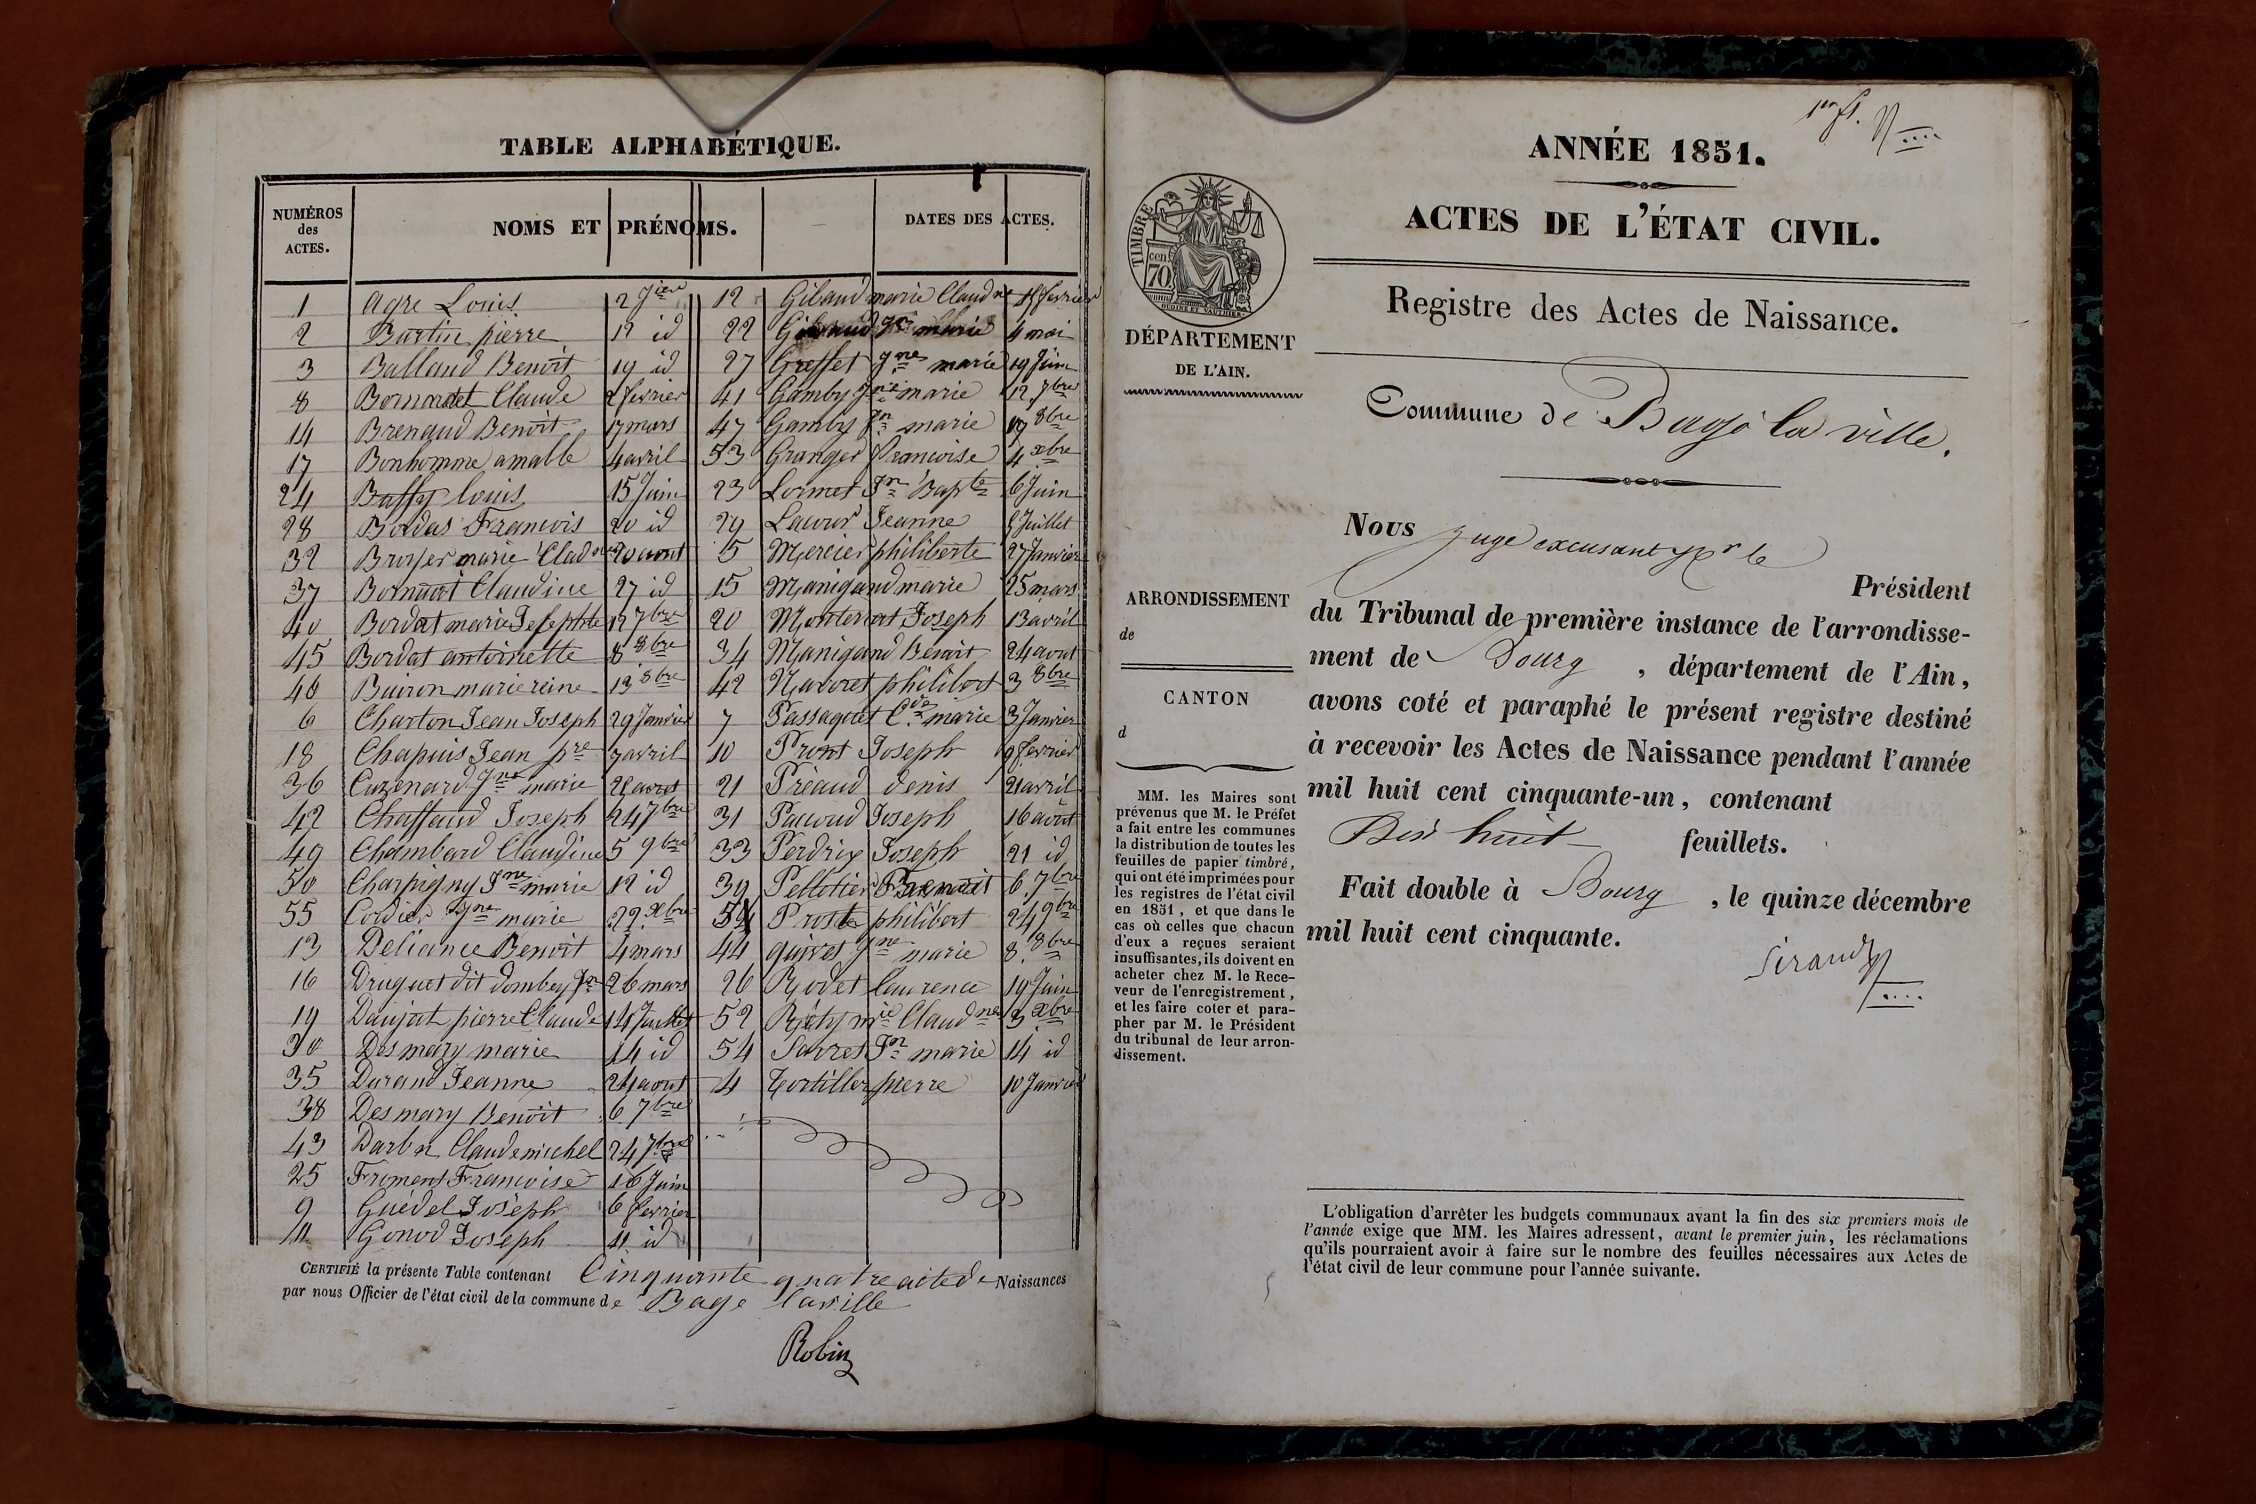 TABLE ALPHABÉTIQUE.
NUMÉROS des ACTES. NOMS ET PRÉNOMS. DATES DES ACTES.
1 Agre Louis 2 Jier
2 Burtin pierre 12 id
3 Balland Benoît 19 id
8 Claude 2 fevrier
14 Brenaud Benoit 17 mars
17 Bonhomme amable 4 avril
24 Buffy louis 15 Juin
28 Bordas Francois 20 id
32 marie 20 aout
37 Claudine 27 id
40 Bordat marie Josephte 12 7bre
45 Bordat antoinette 8 8bre
46 Buiron marie reine 13 8bre
6 Charton Jean Joseph 29 Janvier
18 Chapuis Jean pre 7 avril
36 Cuzenard Jne marie aout
42 Chaffaud Joseph 24 7bre
49 Chambard Claudine 5 9bre
50 Charpigny Jne marie 12 id
55 Cordier Jne marie 22 xbre
13 Deliance Benoît 4 mars
16 Druguet dit dombey Jn 26 mars
19 Danjat pierre Claude 14 Juillet
30 Desmary marie 14 id
35 Durand Jeanne 24 aout
38 Desmary Benoît 6 7bre
43 Claude michel 24 7bre
25 Froment Francoise 16 Juin
9 Guédel Joseph 6 fevrier
11 Gonod Joseph 11 id
12 Giband marie Claudne fevrier
22 marie 4 mai
27 Greffet Jne marie 19 Juin
41 Gamby Jne marie 12 7bre
47 Gamby Jn marie 17 8bre
53 Granger francoise 4 xbre
23 Lormet Jn Bapte 6 Juin
29 Lacour Jeanne Juillet
5 Mercier philiberte 27 Janvier
15 Manigand marie 25 mars
20 Monternot Joseph 13 avril
34 Manigand Benoit 24 aout
42 philibert 3 8bre
7 marie 3 Janvier
10 Pront Joseph 9 fevrier
21 Préaud denis 21 avril
31 Pacoud Joseph 16 août
33 Perdrix Joseph 21 id
39 Pelletier 6 7bre
Prost philibert 24 9bre
44 quivet Jne marie 8 8bre
26 Rodet laurence 19 Juin
52 Réty mie Claudne 3 xbre
54 Savret Jn marie 14 id
4 Tortillet pierre 10 Janvier
CERTIFIÉ la présente Table contenant Cinquante quatre acte de Naissances
par nous Officier de l'état civil de la commune de Bage laville
Robin
ANNÉE 1851.
ACTES DE L'ÉTAT CIVIL.
TIMBRE
cen
70
DÉPARTEMENT
DE L'AIN.
Registre des Actes de Naissance.
Commune de Bagé la ville.
ARRONDISSEMENT
de
CANTON
d
MM. les Maires sont
prévenus que M. le Préfet
a fait entre les communes
la distribution de toutes les
feuilles de papier timbré,
qui ont été imprimées pour
les registres de l'état civil
en 1851, et que dans le
cas où celles que chacun
d'eux a reçues seraient
insuffisantes, ils doivent en
acheter chez M. le Rece-
veur de l'enregistrement,
et les faire coter et para-
pher par M. le Président
du tribunal de leur arron-
dissement.
Nous Juge excusant Mr le
Président
du Tribunal de première instance de l'arrondisse-
ment de Bourg, département de l'Ain,
avons coté et paraphé le présent registre destiné
à recevoir les Actes de Naissance pendant l'année
mil huit cent cinquante-un, contenant
Dix huit feuillets.
Fait double à Bourg, le quinze décembre
mil huit cent cinquante.
Sirand
L'obligation d'arrêter les budgets communaux avant la fin des six premiers mois de
l'année exige que MM. les Maires adressent, avant le premier juin, les réclamations
qu'ils pourraient avoir à faire sur le nombre des feuilles nécessaires aux Actes de
l'état civil de leur commune pour l'année suivante.